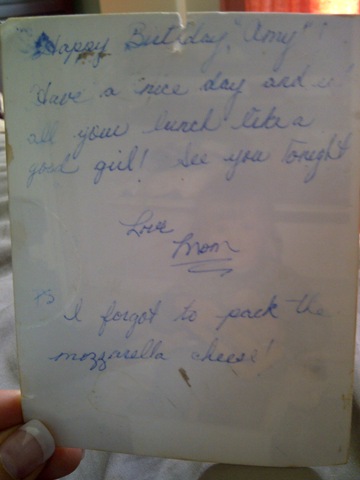 Happy Birthday, "Amy"!
Have a nice day and
all your lunch like a
good girl! See you Tonight
Love
Mom
PS
I forgot to pack the
mozzarella cheese!